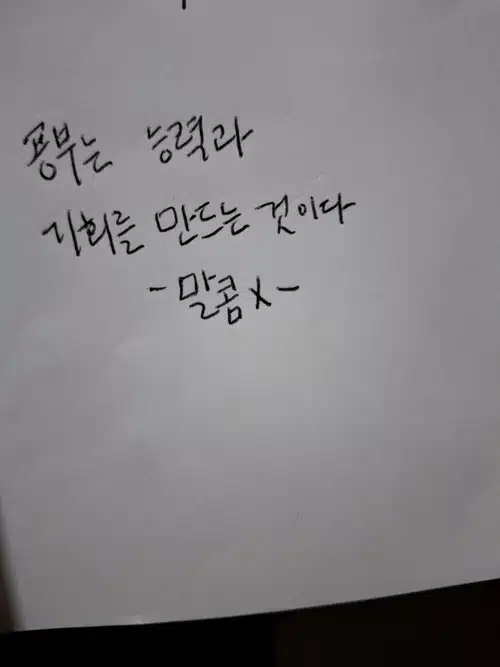 공부는 능력과
기회를 만드는 것이다
- 말콤 X -